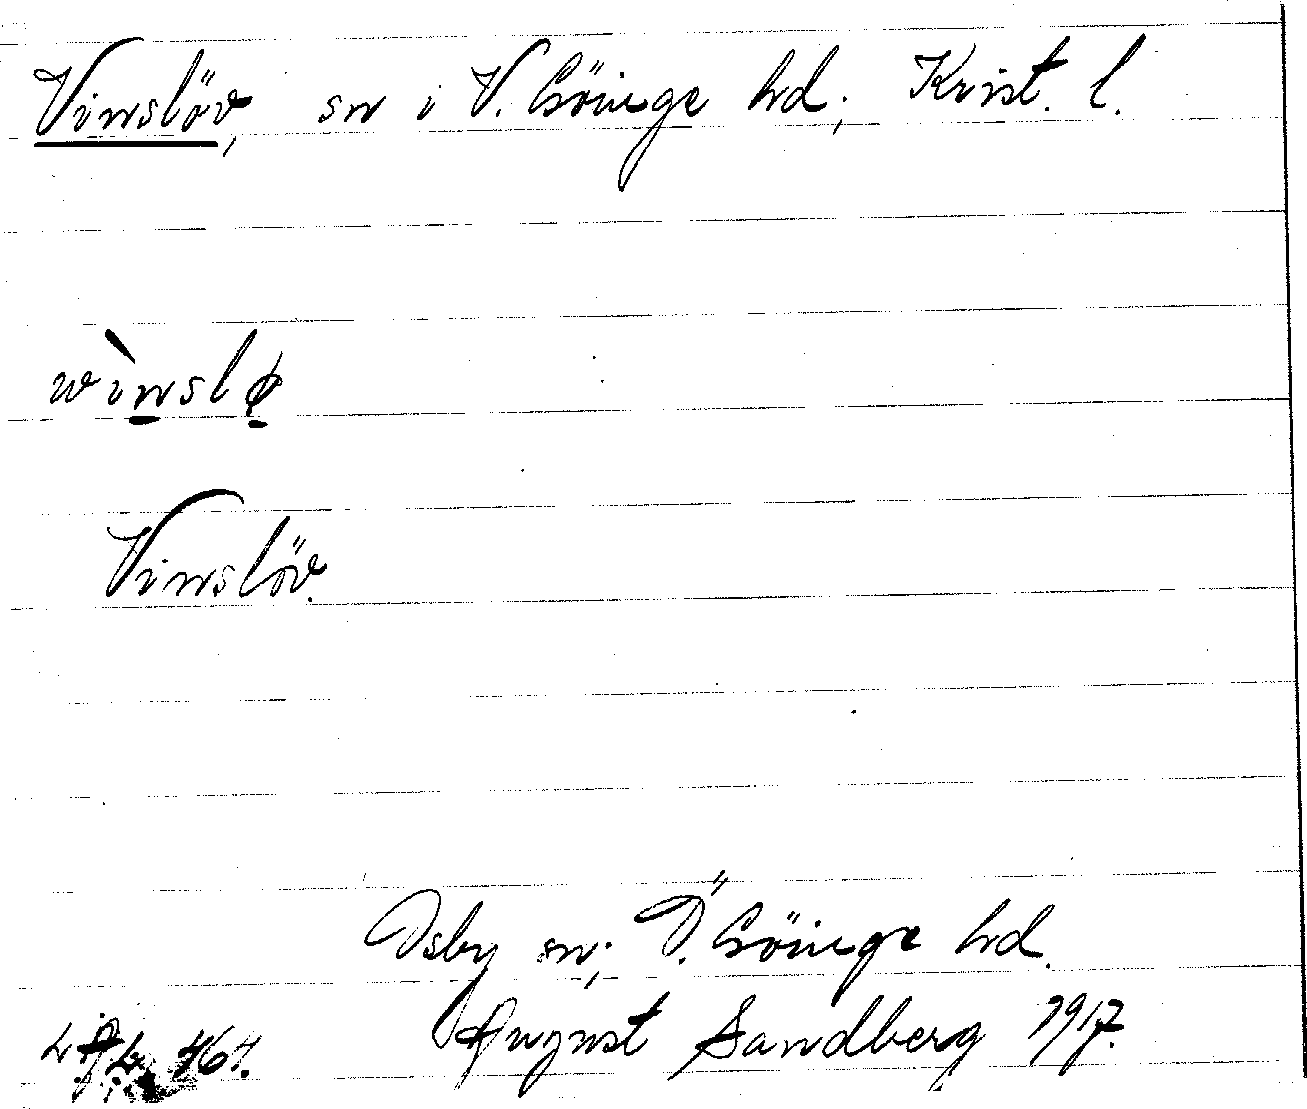 Vinslöv, sn i V. Göinge hd, Krist. l.
winslø
Vinslöv.
Osby sn; Ö. Göinge hd.
August Sandberg 1917.
464.